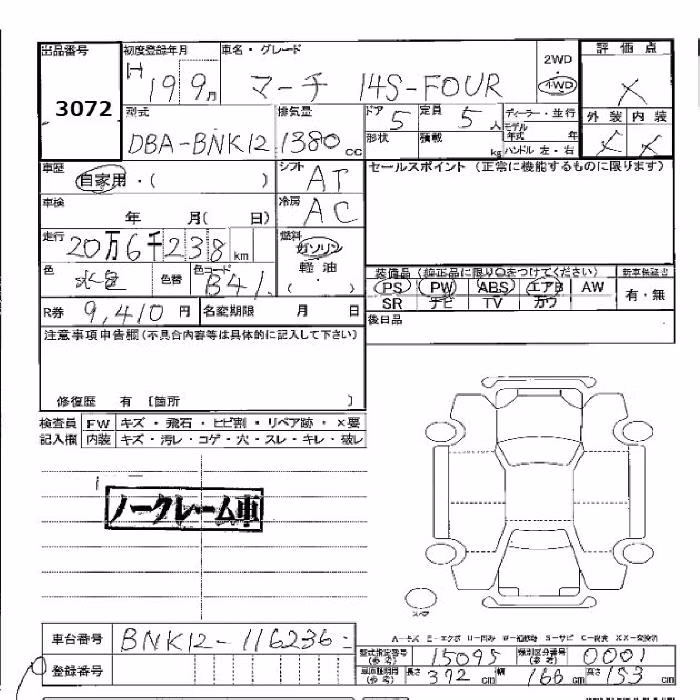 出品番号 初度登録年月 車名・グレード 評価点
3072 H 19 9月 マーチ 14S-FOUR 2WD ・ 4WD ×
型式 排気量 ドア 定員 ディーラー・並行 外装 内装
DBA-BNK12 1380cc 5 5人 モデル年式 年 × ×
形状 積載 kg ハンドル 左・右
車歴 シフト セールスポイント (正常に機能するものに限ります)
自家用・( ) AT
車検 冷房
年 月( 日) AC
走行 燃料
20万6千238km ガソリン
軽油
( ・ )
色 水色 色替 色コード B41 装備品 (純正品に限り○をつけてください) 新車保証書
PS PW ABS エアB AW 有・無
SR ナビ TV カワ
R券 9,410円 名変期限 月 日 後日品
注意事項申告欄 (不具合内容等は具体的に記入して下さい)
修復歴 有 〔箇所 〕
検査員 FW キズ・飛石・ヒビ割・リペア跡・×要
記入欄 内装 キズ・汚レ・コゲ・穴・スレ・キレ・破レ
ノークレーム車
スペア
A-キズ E-エクボ U-凹み W-補修跡 S-サビ C-腐食 XX-交換済
車台番号 BNK12-116236
型式指定番号(参考) 15095 類別区分番号(参考) 0001
登録番号
長さ 372cm 幅 166cm 高さ 153cm